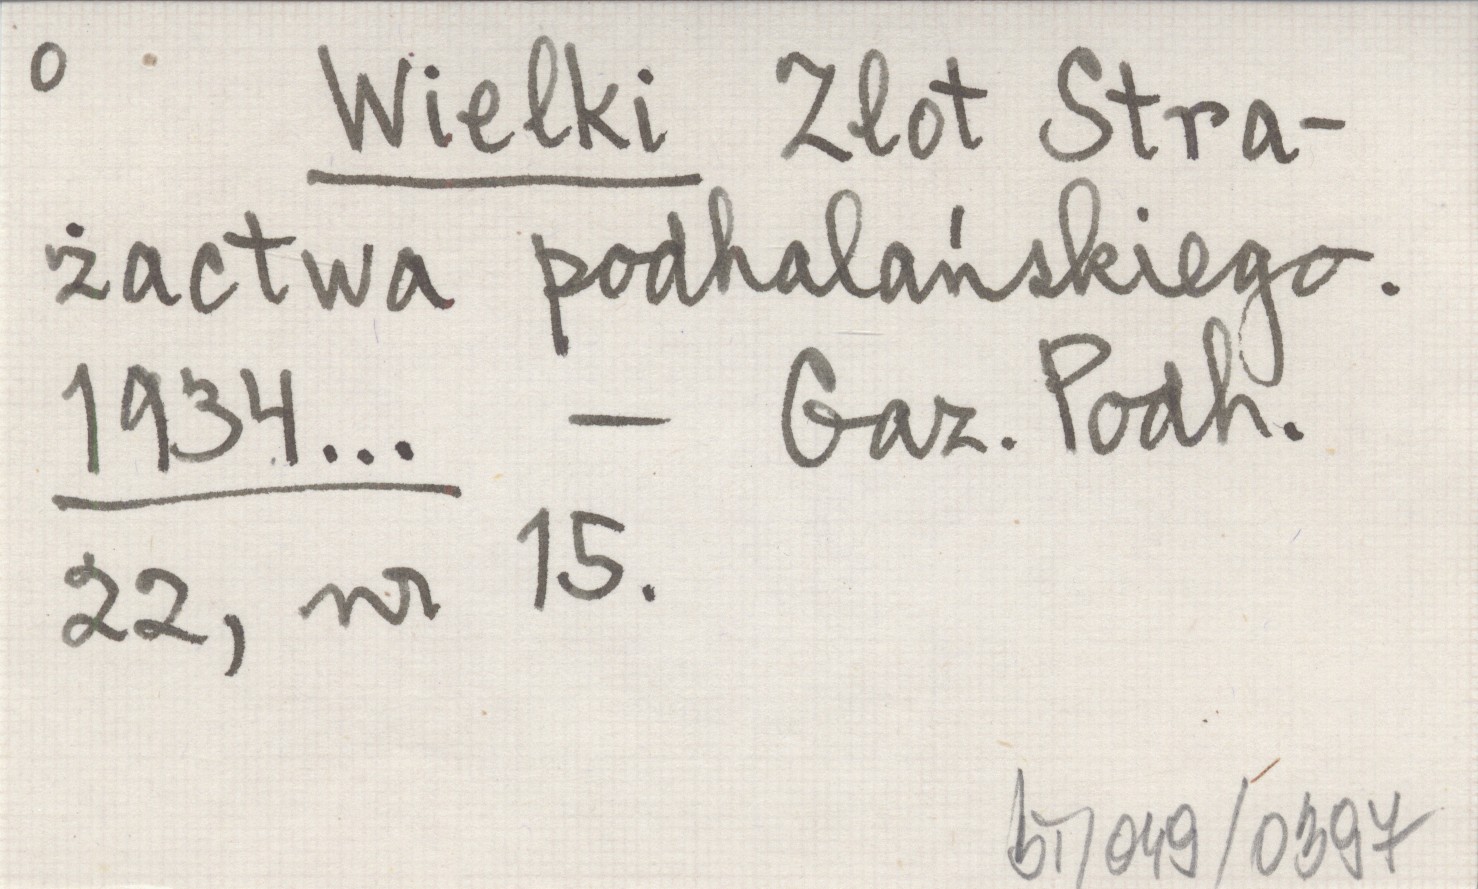 o Wielki Zlot Stra-
żactwa podhalańskiego.
1934... — Gaz. Podh.
22, nr 15.
/049/0397